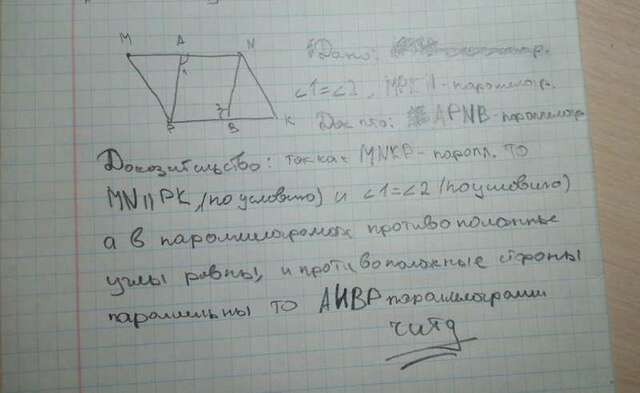 M A N
1
2
P B K
Дано:
∠1=∠2, MPKN-параллелогр.
Док-ть: APNB-параллелогр
Докозительство: так как MNKP-паролл. то
MN∥PK (по условию) и ∠1=∠2 (по условию)
а в параллелограмах противоположные
углы равны, и противоположные стороны
параллельны то ANBP параллелограмм
читд